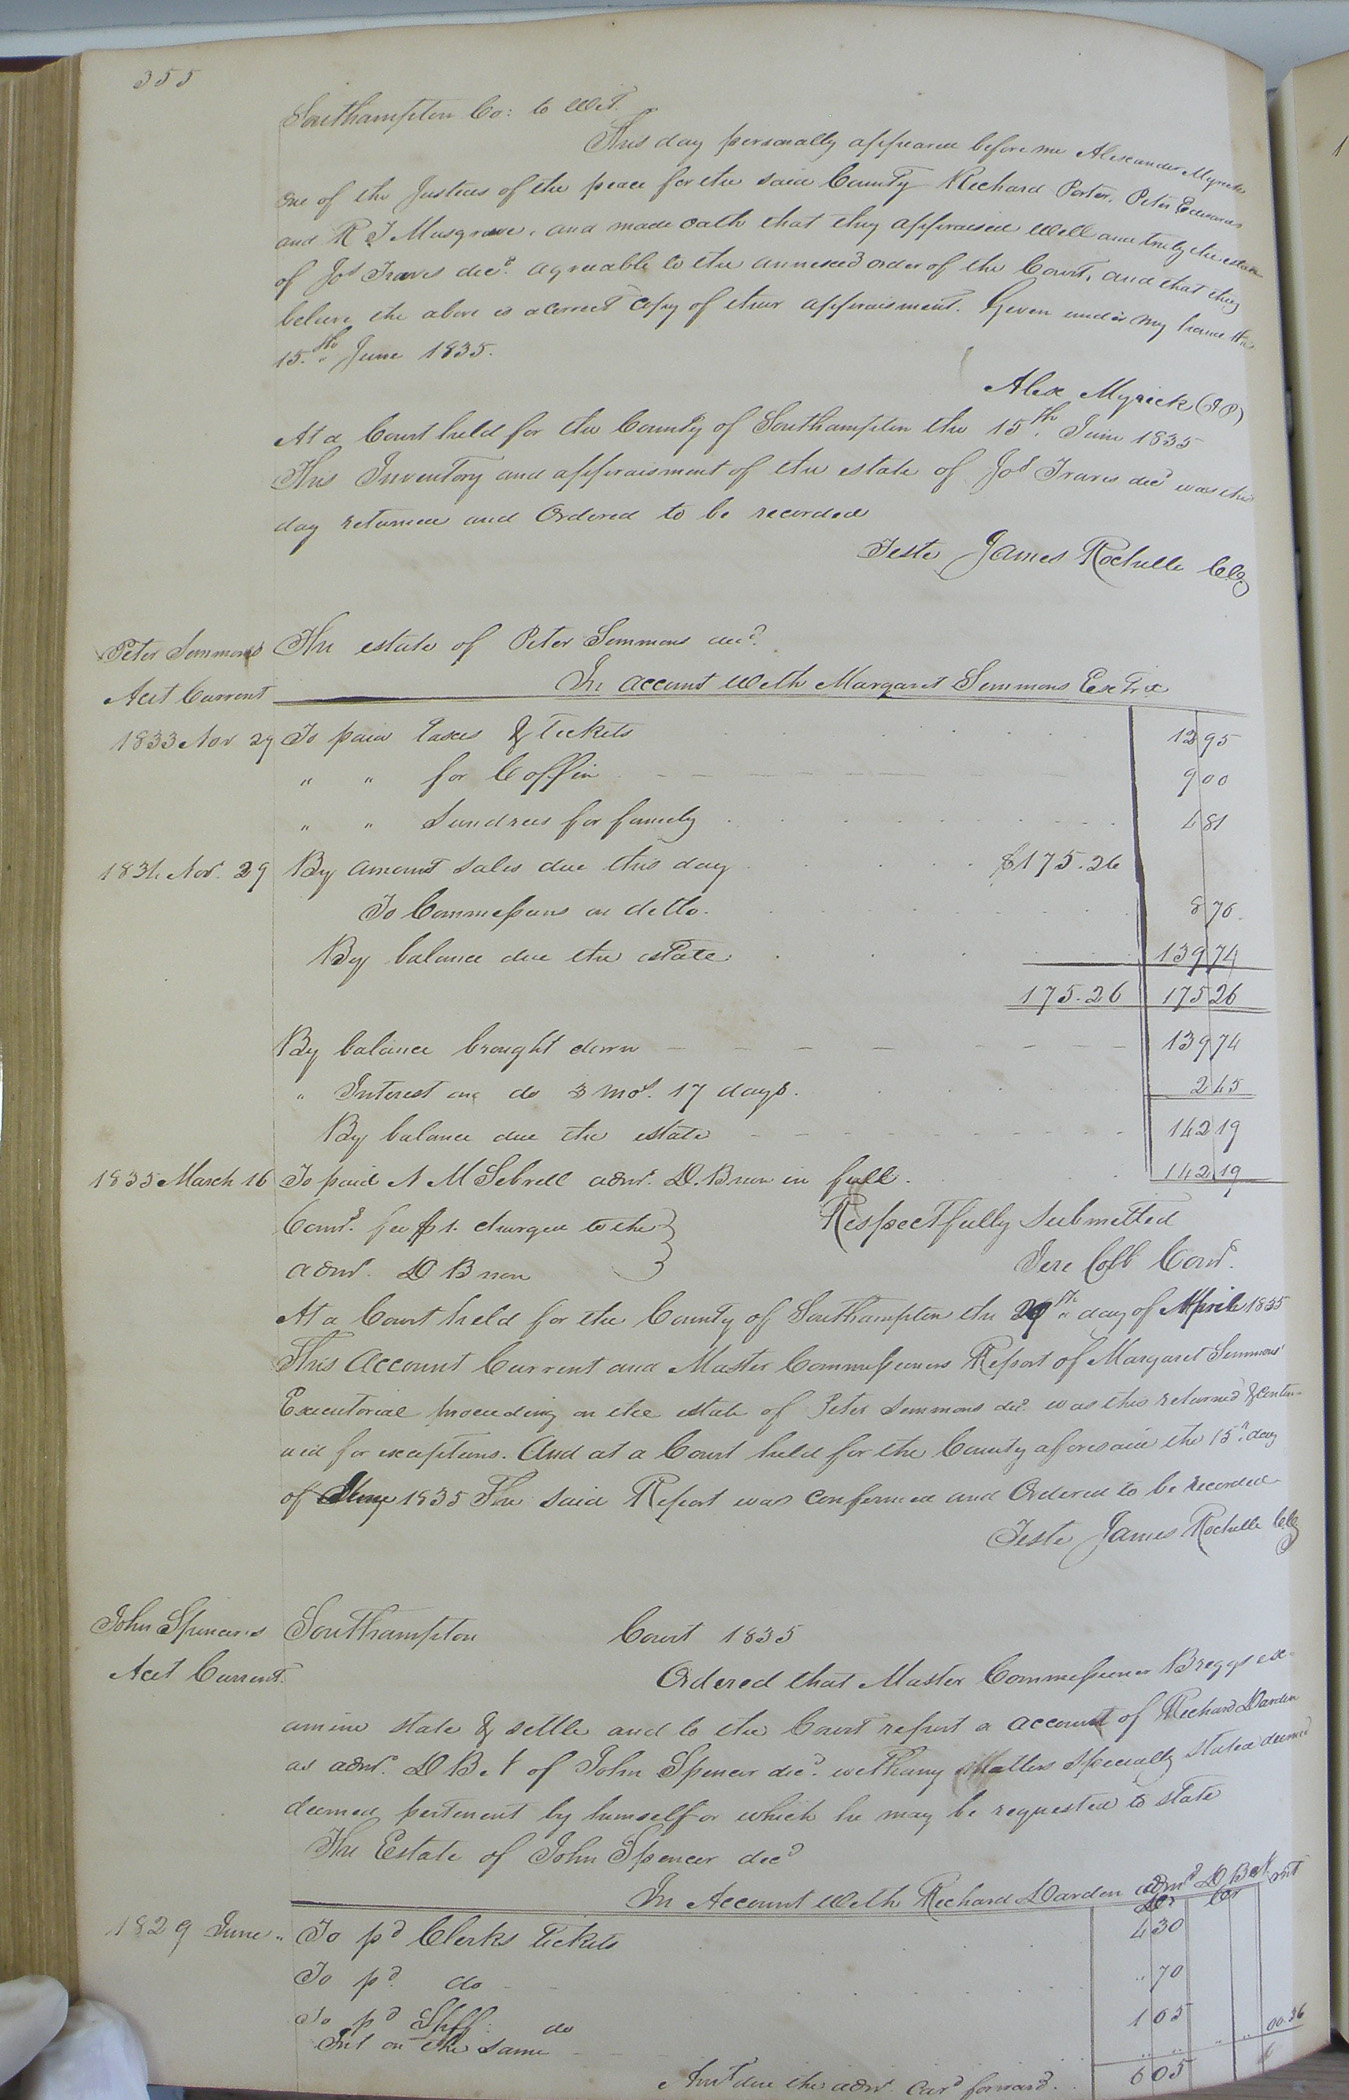 355
Southampton Co: to Wit.
This day personally appeared before me Alexander Myrick
one of the Justices of the peace for the said County Richard Porter, Peter Edwards
and R T Musgrave, and made oath that they appraised Well and truly the estate
of Jos Travis decd. agreeable to the annexed order of the Court, and that they
believe the above is a correct Copy of their appraisment. Given under my hand this
15.th June 1835.
Alex Myrick (J P)
At a Court held for the County of Southampton the 15th. June 1835
This Inventory and appraisment of the estate of Jos Travis decd was this
day returned and Ordered to be recorded
Teste James Rochelle Clk
Peter Simmons The estate of Peter Simmons decd.
Acct Current In account With Margaret Simmons ExTrix
1833 Nov 29 To paid taxes & Tickets 12 95
" " for Coffin 9 00
" " Sundries for family 4 81
1834 Nov. 29 By amount sales due this day $175.26
To Commissions on ditto. 8 76
By balance due the estate 139 74
175.26 175 26
By balance brought down 139 74
" Interest on do 3 mos. 17 days. 2 45
By balance due the estate 142 19
1835 March 16 To paid N M Sebrell admr. D. B non in full. 142 19
Comr. fee $1. charged to the } Respectfully Submitted
admr. D B non Jere Cobb Comr.
At a Court held for the County of Southampton the day of April 1835
This Account Current and Master Commissioners Report of Margaret Simmons'
Executorial proceeding on the estate of Peter Simmons decd. was this returned & contin-
ued for exceptions. And at a Court held for the County aforesaid the 15th. day
of June 1835 The said Report was confirmed and Ordered to be recorded
Teste James Rochelle Clk
John Spencer's Southampton Court 1835
Acct Current. Ordered that Master Commissioner Briggs ex-
amine state & settle and to the Court report a account of Richard Darden
as admr. D B N of John Spencer decd. with any Matters specially stated deemed
deemed pertinent by himself or which he may be requested to state
The Estate of John Spencer decd
In Account With Richard Darden admr D B N
Dr Cr Int
1829 June " To pd Clerks Tickets 4 30
To pd. do " 70
To pd Shff: do 1 05
Int on the same " " " " 00.36
Amt due the admr. card forward. 6 05